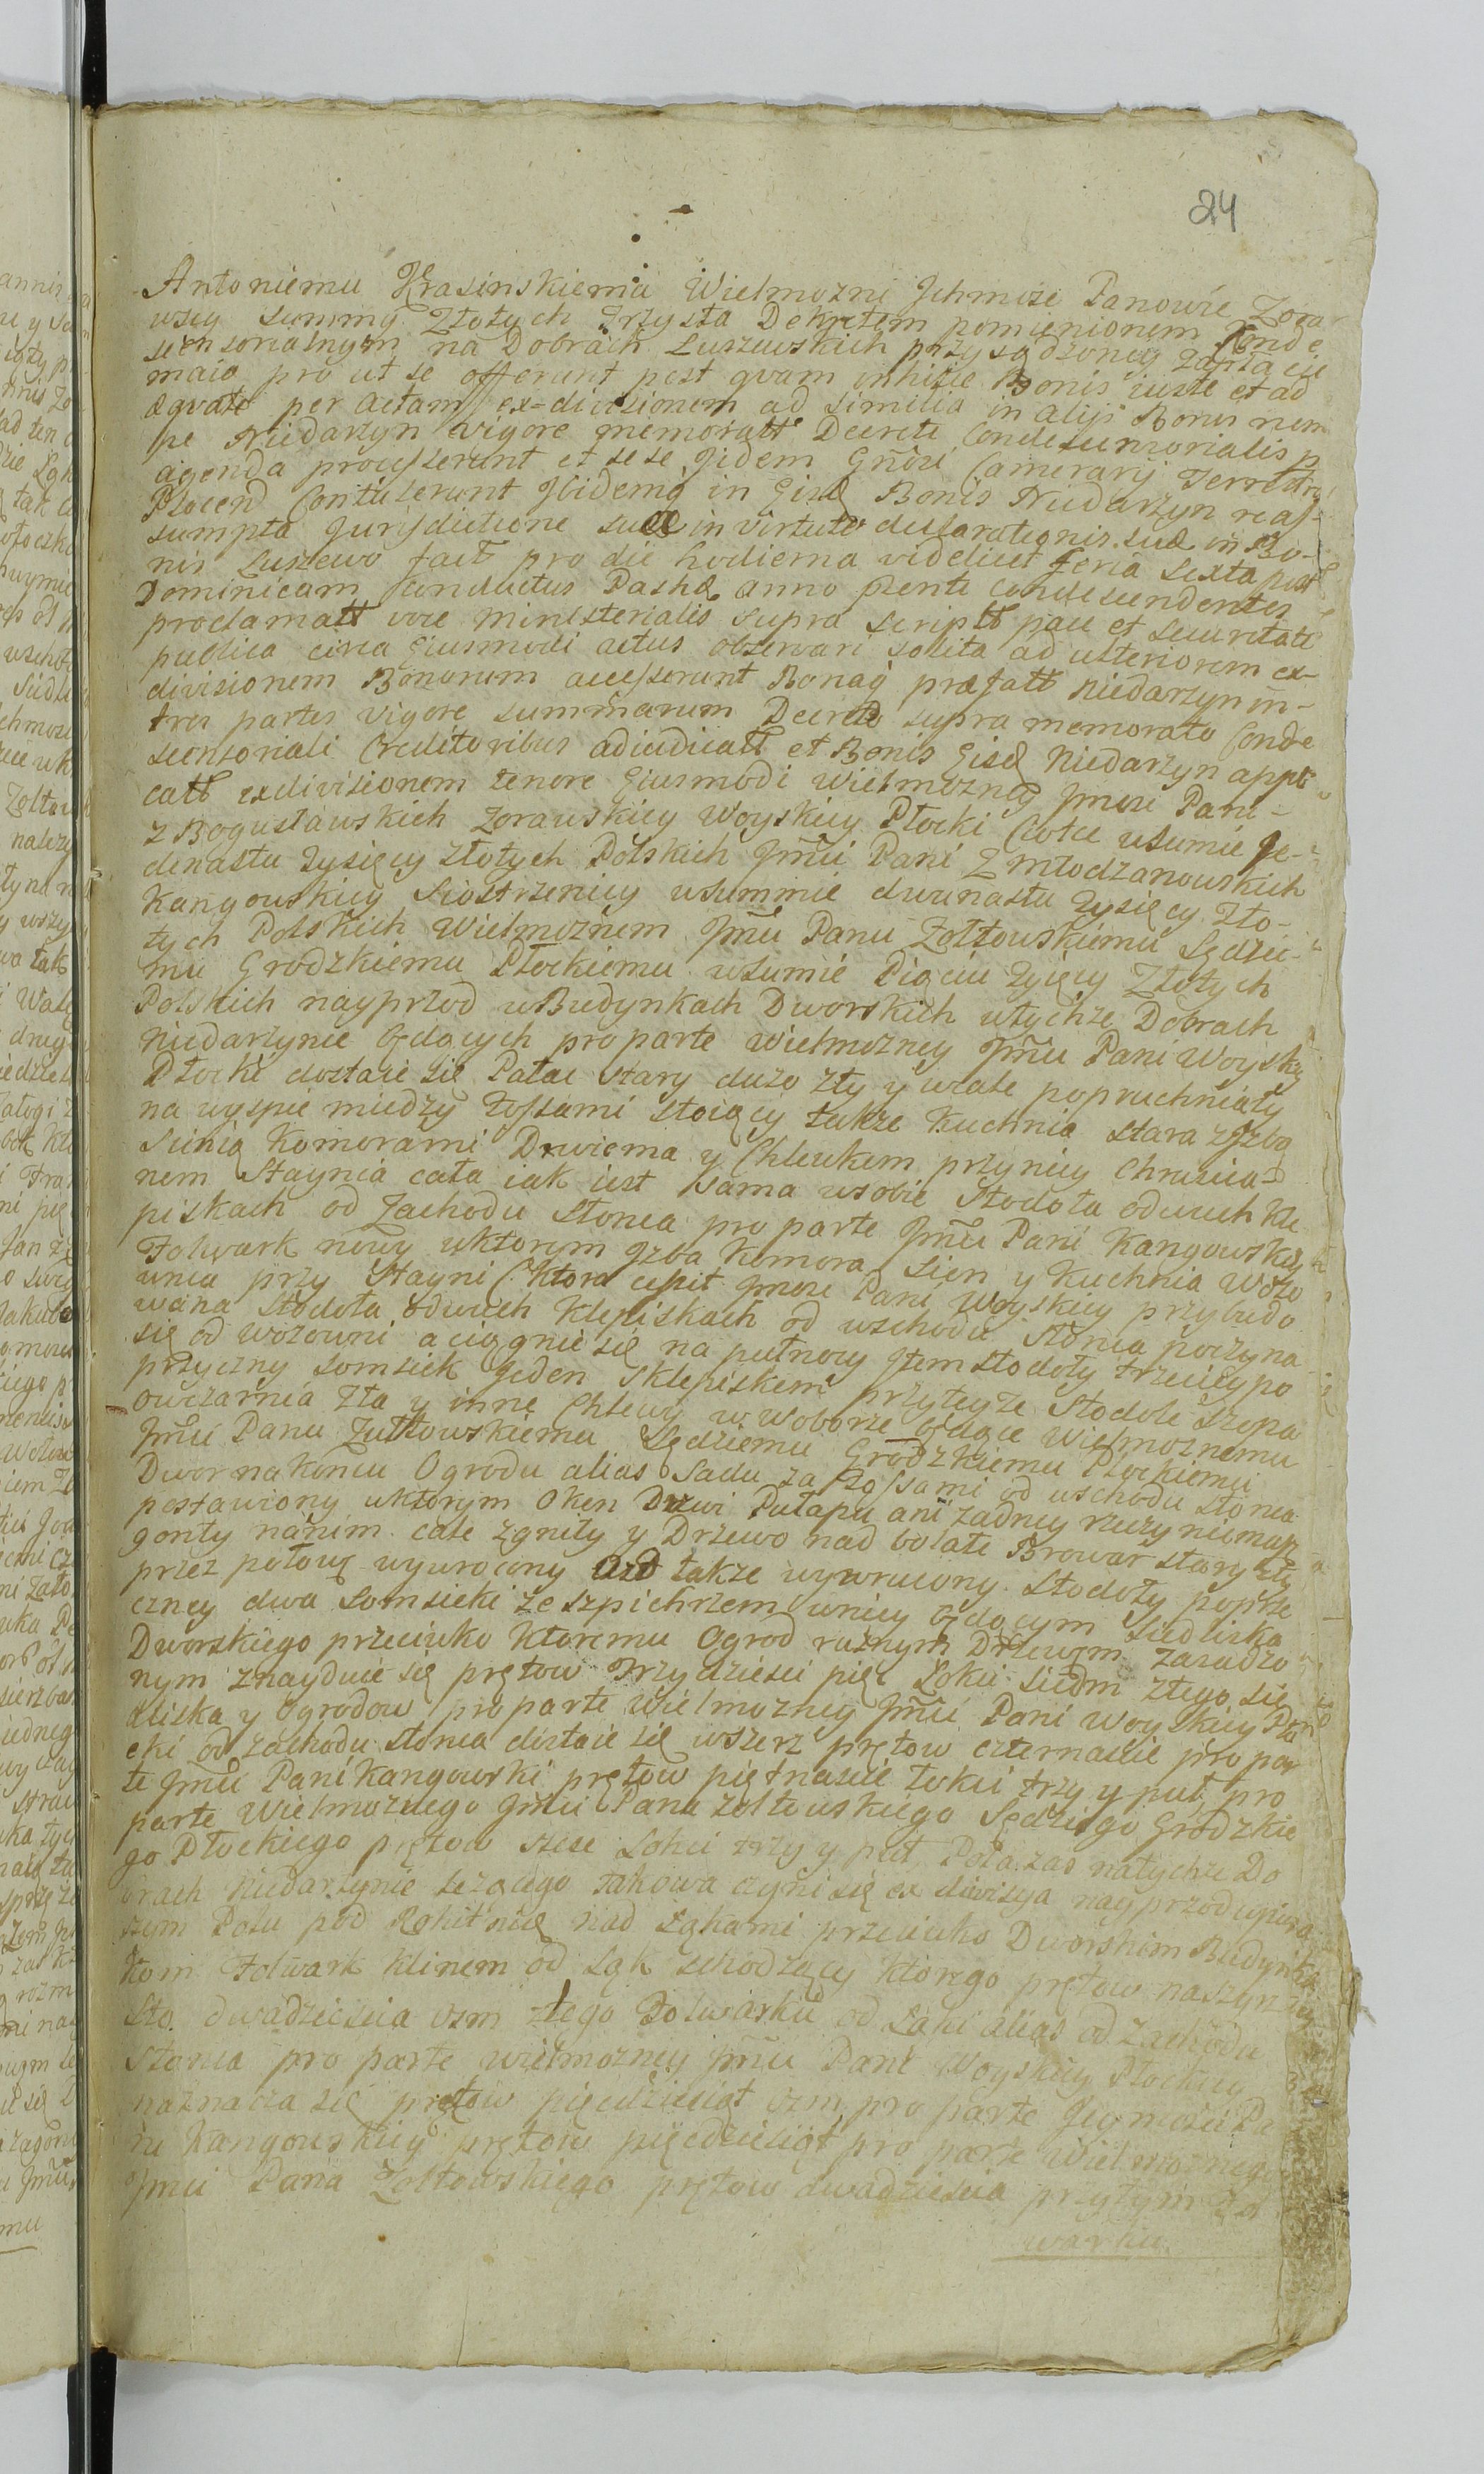 24
Antoniemu Krasinskiemu Wielmozni Jchmość Panowie Zora
wscy summy Złotych Trzysta Dekretem pomienionem Conde
scensorialnym na Dobrach Luszewskich przysądzoney zapłacie
maią pro ut se offerunt post qvam in hisce Bonis iuste et ad
æqvate per actam ex-divisionem ad similia in alijs Bonis nem
pe Niedarzyn vigore memoratt Decreti Condescensorialis p
agenda processerunt et sese Jidem Gnosi Camerarij Terrestr
Plocens Contulerunt Jbidemq in Eisd Bonis Niedarzyn reas-
sumpta Jurisdictione suæ in virtute declarationis suæ in Bo-
nis Luszewo fact pro die hodierna videlicet feria sexta post
Dominicam Conductus Paschæ anno præsenti Condescendentes
proclamatt voce ministerialis supra scriptt pace et securitate
publica circa Eiusmodi actus observari solita ad ulteriorem ex-
divisionem Bonorum accesserunt Bonaq præfatt Niedarzyn in-
tres partes vigore summarum Decreto supra memorato Conde
scensoriali Creditoribus adiudicatt et Bonis Eisd Niedarzyn appli
catt exdivisionem tenore Eiusmodi Wielmozney Jmosc Pani-
z Bogusławskich Zorawskiey Woyskiey Płocki Ciotce wsumie Je-
denastu Tysięcy złotych Polskich Jmci Pani Z Młodzanowskich
Kangowskiey Siostrzenicy wsummie dwunastu Tysięcy zło-
tych Polskich Wielmożnem Jmci Panu Zołtowskiemu Sędzie-
mu Grodzkiemu Płockiemu wsumie Pięciu Tyięcy Złotych
Polskich nayprzod w Budynkach Dworskich wtychze Dobrach
Niedarzynie będących pro parte wielmozney Jmci Pani Woyskiy
Płocki dostaie się Pałac stary duzo zły y wcale popruchniały
na wyspie miedzy fossami stoiący takze Kuchnia stara z Jzbą
Sienią Komorami Dwiema y Chlewkem przy niey Chrusia-
nem Staynia cała iak iest sama wsobie Stodoła odwuch Kle
piskach od Zachodu Słonca pro parte Jmci Pani Kangowskiy
Folwark nowy wktorym Jzba Komora Sien y Kuchnia wozo
wnia przy Stayni (Ktora cessit Jmosc Pani Woyskiey przybudo
wana Stodoła odwuch Klepiskach od wschodu Słonca poczyna
się od wozowni a ciągnie się na pułnocy Jtem stodoły trzeciey po
przyczny somsiek Jeden Sklepiskem przyteyze Stodole Szopa
owczarnia zła y inne Chlewy w woborze będące Wielmoznemu
Jmci Panu Zułtowskiemu Sędziemu Grodzkiemu Płockiemu
Dwor nakoncu Ogrodu alias Sadu za Fossami od wschodu Słonca
postawiony wktorym Oken Drzwi Pułapu ani zadney rzeczy niemasz
gonty nanim cale zgniły y Drzewo nad bolałe Browar stary zły
przez połowę wywrocony Ozd takze wywrucony. Stodoły poprze
czney dwa Somsieki ze szpichrzem wniey będącym Siedliska
Dworskiego przeciwko Ktoremu Ogrod roznym Drzewem zasadzo
nym znayduie się prętow Trzydziesci pięc Łokci siedm ztego się
dliska y Ogrodow pro parte Wielmozney Jmci Pani Woyskiey Pło
cki od zachodu słonca dostaie się wszerz prętow czternascie pro par
te Jmci Pani Kangowski prętow piętnascie łokci trzy y puł pro
parte Wielmoznego Jmci Pana Zołtowskiego Sędziego Grodzkie
go Płockiego prętow szesc Łokci trzy y puł, Pola zas natychze Do
brach Niedarzynie lezącego takowa czyni się ex divisya nayprzod wpierw
szym Polu pod Rokitnicę nad Łąkami przeciwko Dworskim Budynka
kom Folwark klinem od Łąk schodzący ktorego prętow naszyrz
Sto. dwadziescia osm ztego Folwarku od Łąki alias od zachodu
Słonca pro parte wielmozney Jmci Pani Woyskiey Płockiey
naznacza się prętow pięcdziesiąt osm pro parte Jeymosci Pa
ni Kangowskiey prętow pięcdziesiąt pro parte Wielmoznego
Jmci Pana Zołtowskiego prętow dwadziescia przytym Fol
warku